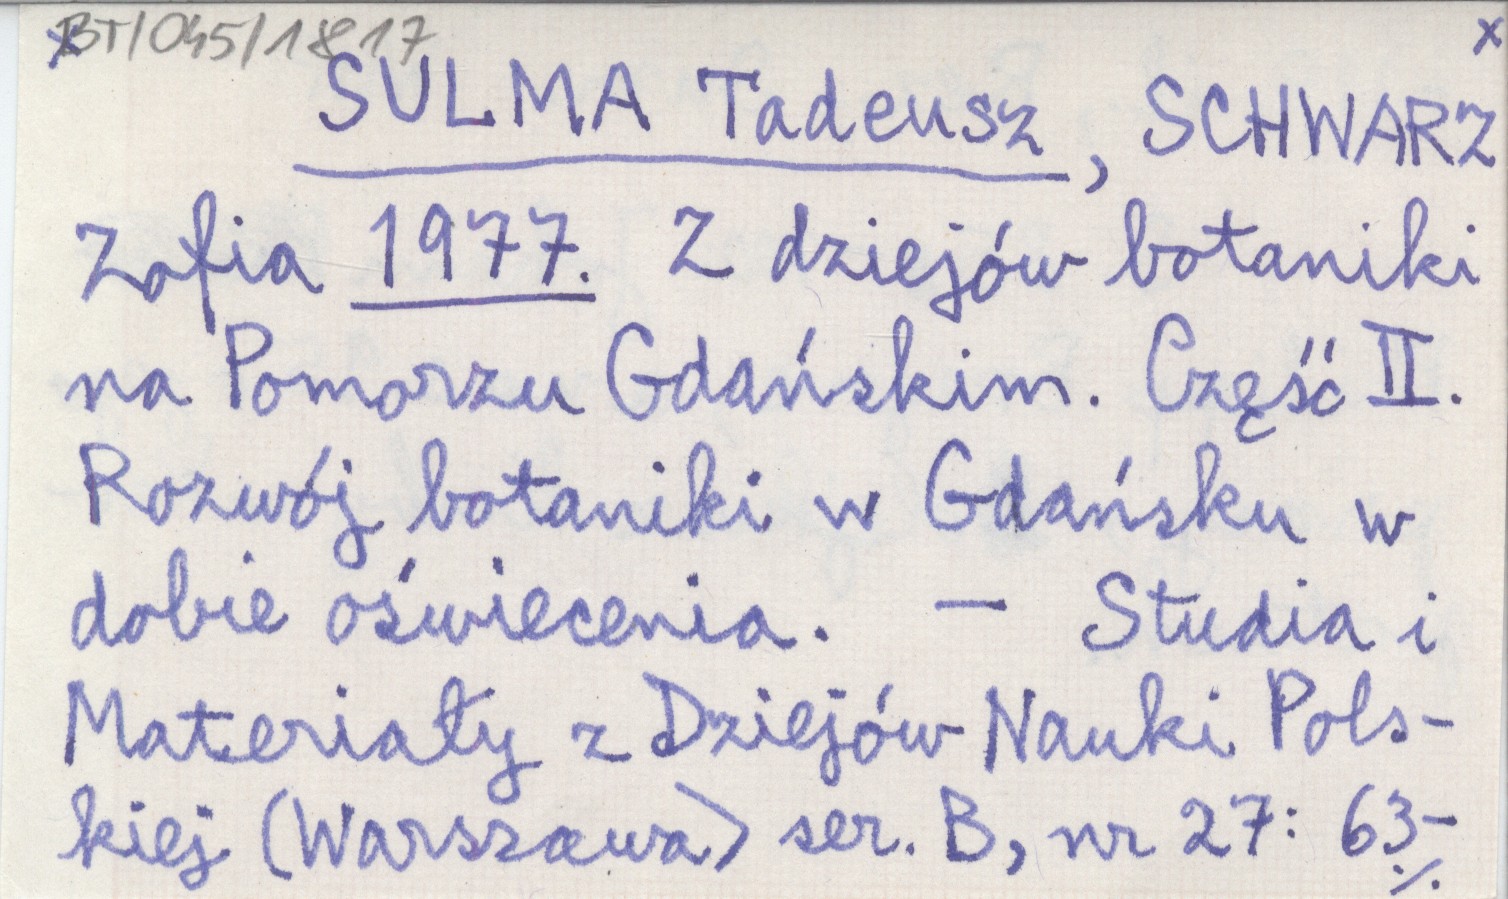 BT/045/1817
x x
SULMA Tadeusz, SCHWARZ
Zofia 1977. Z dziejów botaniki
na Pomorzu Gdańskim. Część II.
Rozwój botaniki w Gdańsku w
dobie oświecenia. — Studia i
Materiały z Dziejów Nauki Pols-
kiej (Warszawa) ser. B, nr 27: 63-
./.